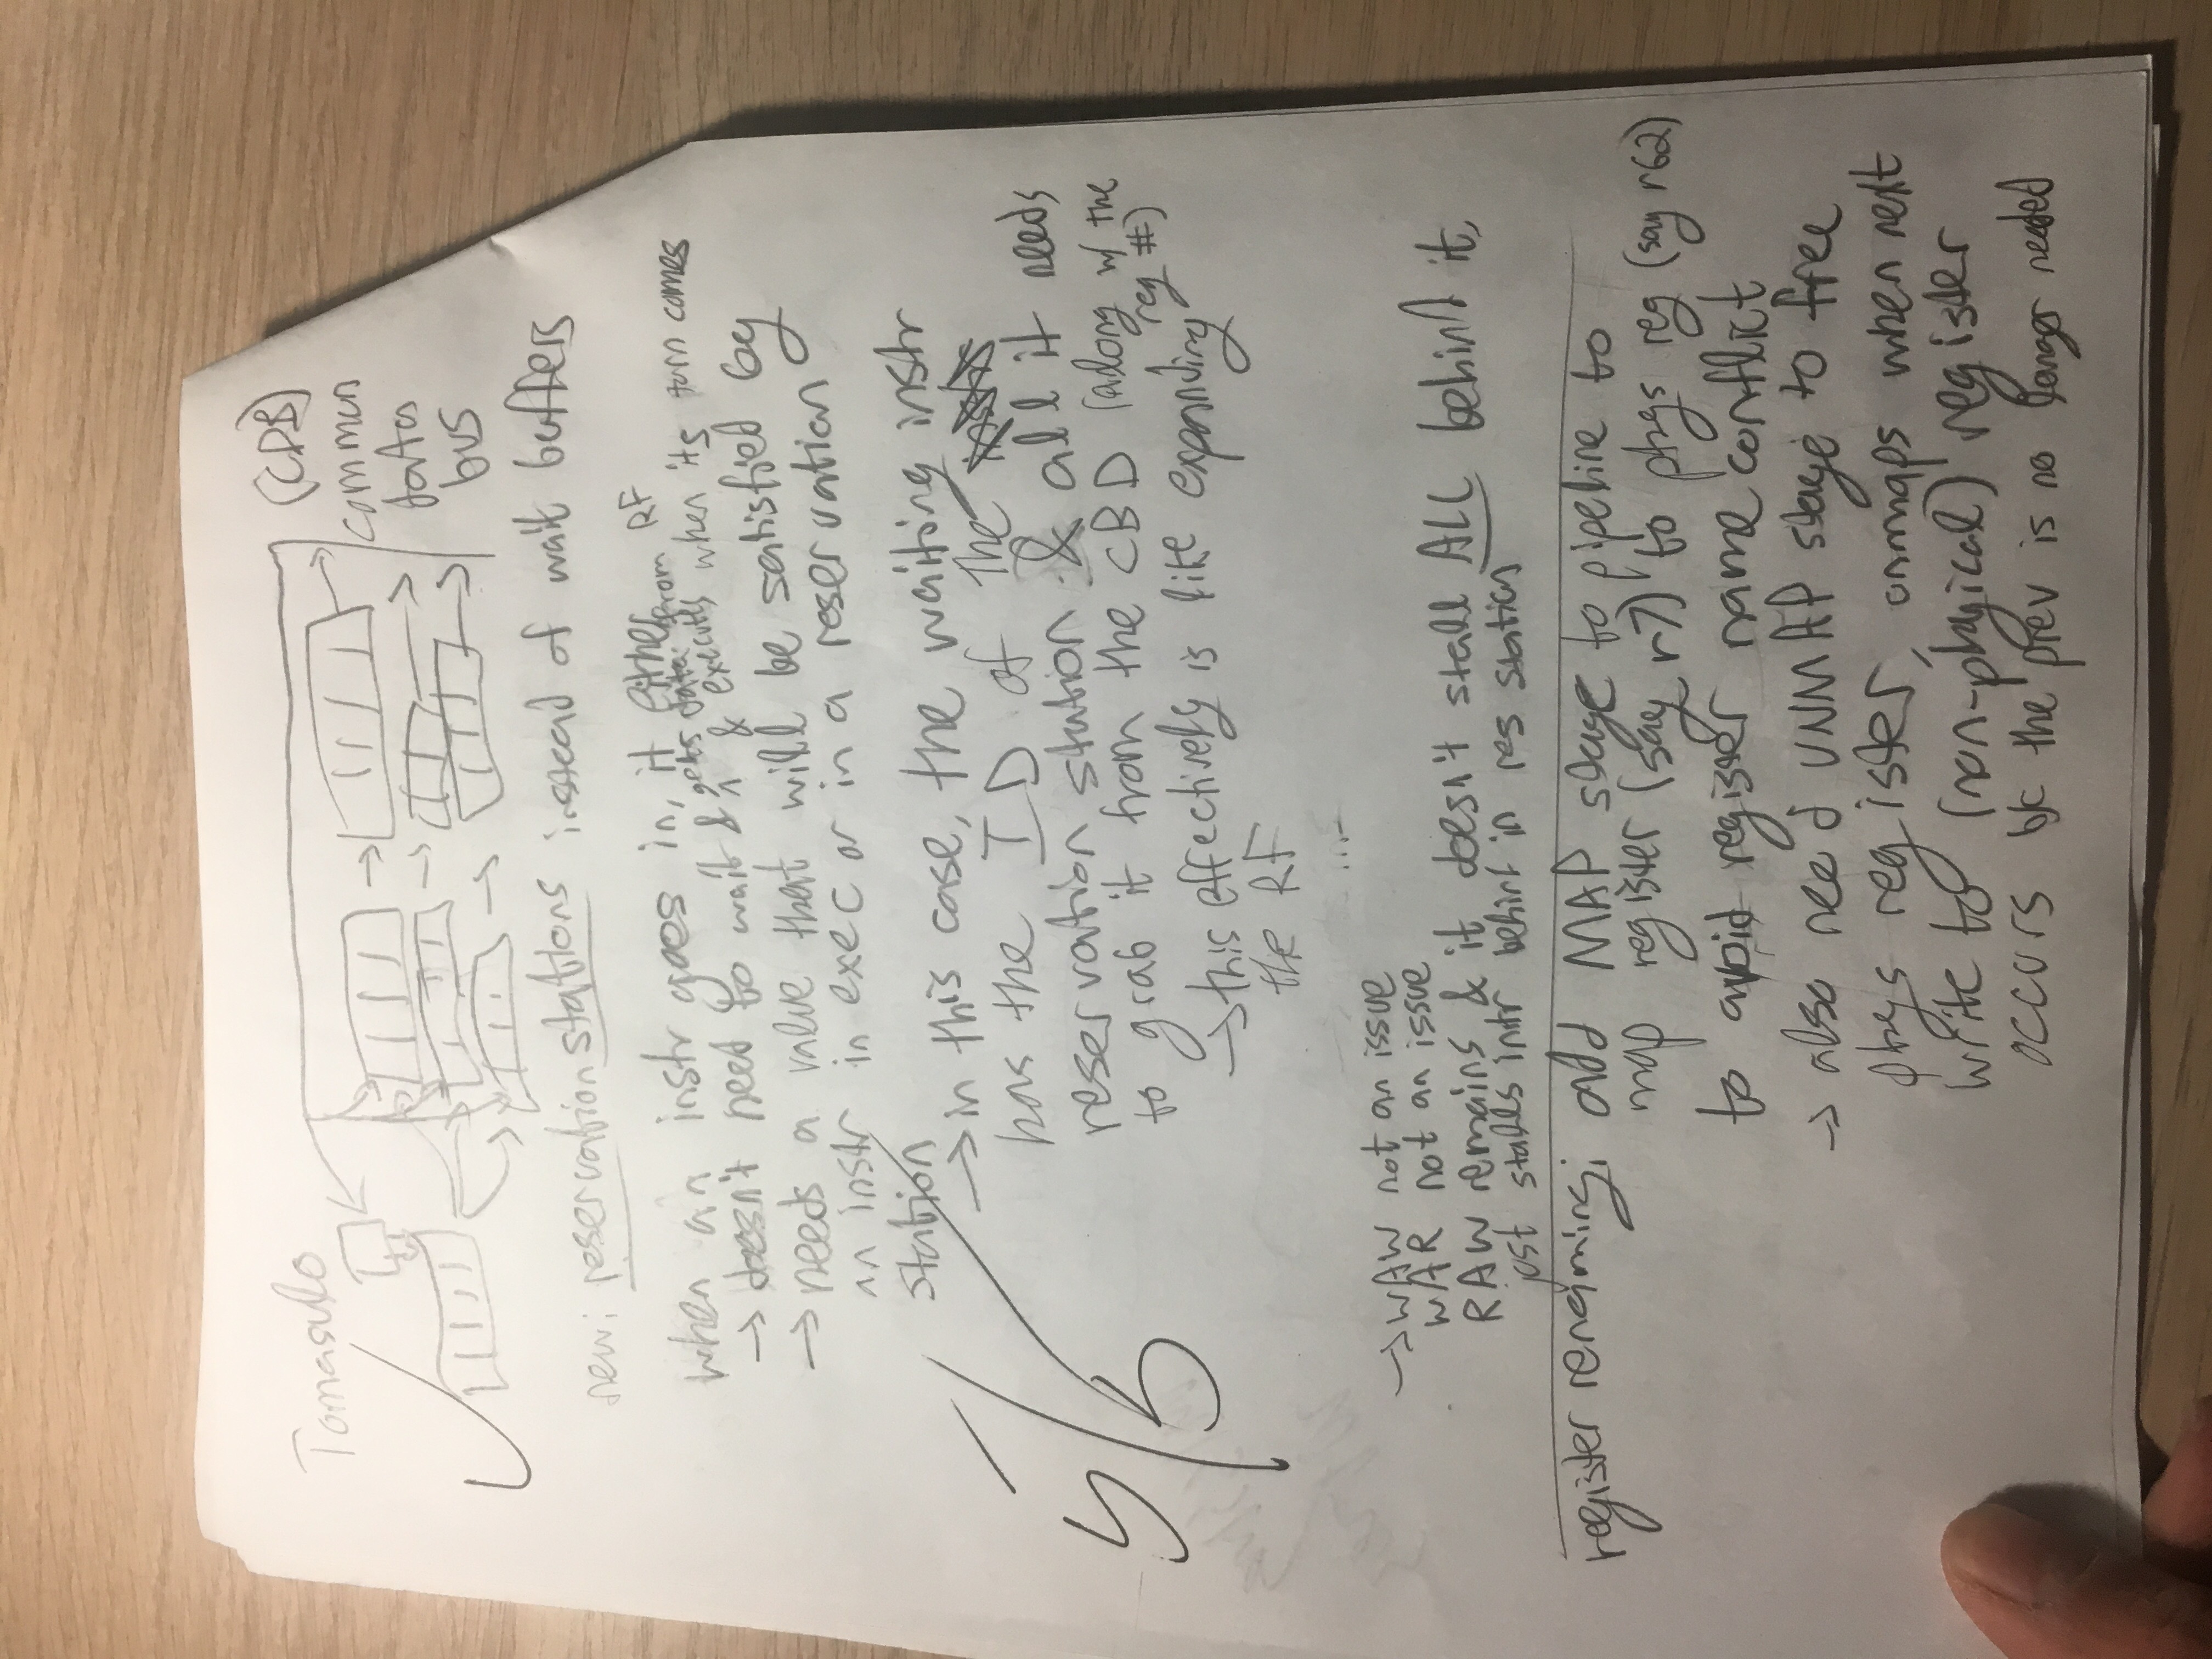 Tomasulo
(CDB)
common
data
bus
new: reservation stations instead of wait buffers
when an instr goes in, it either
→ doesn't need to wait & gets data from RF & executes when its turn comes
→ needs a value that will be satisfied by
an instr in exec or in a reservation
station
→ in this case, the waiting instr
has the ID of the
reservation station & all it needs
to grab it from the CBD (along w/ the reg #)
→ this effectively is like expanding
the RF
....
→ WAW not an issue
WAR not an issue
RAW remains & it doesn't stall ALL behind it,
just stalls instr behind in res station
5/5
register renaming: add MAP stage to pipeline to
map register (say r7) to phys reg (say r62)
to avoid register name conflict
→ also need UNMAP stage to free
phys register, unmaps when next
write to (non-physical) register
occurs bc the prev is no longer needed